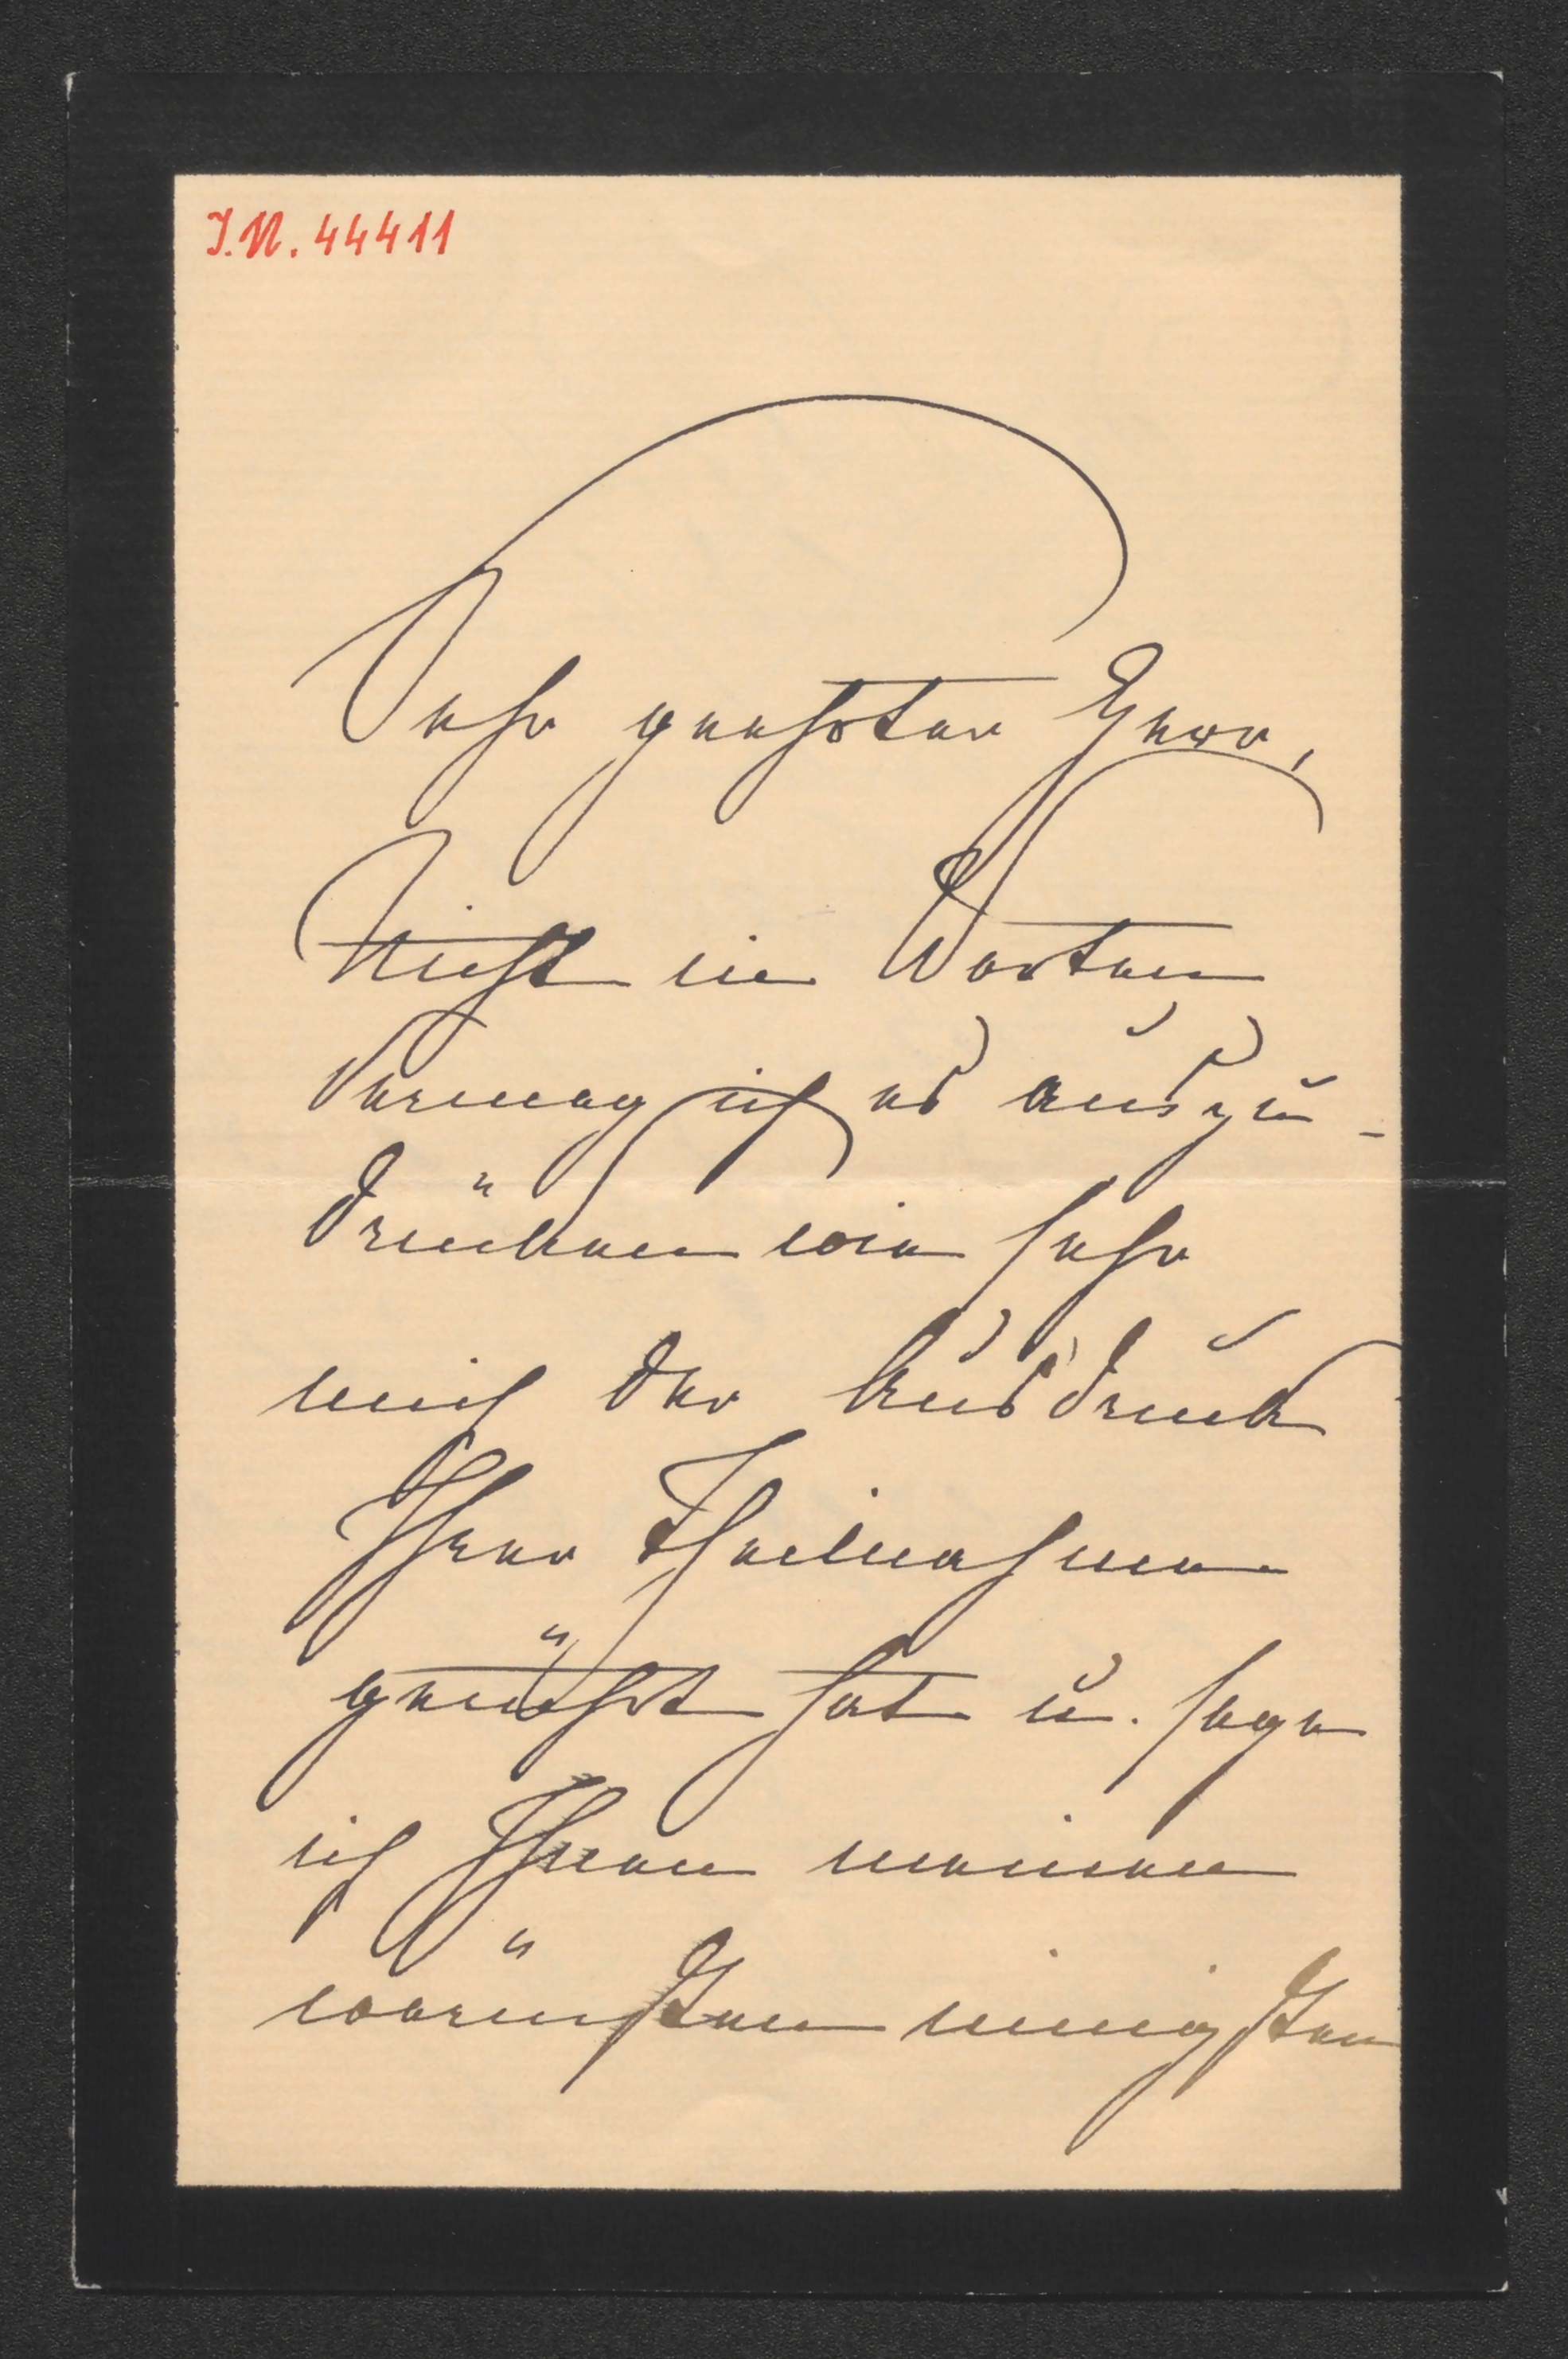 I.N. 44411
Sehr geehrter Herr,
Nicht in Worten
vermag ich es auszu-
drücken wie sehr
mich der Ausdruck
Ihrer Theilnahme
gerührt hat u. sage
ich Ihnen meinen
wärmsten innigsten